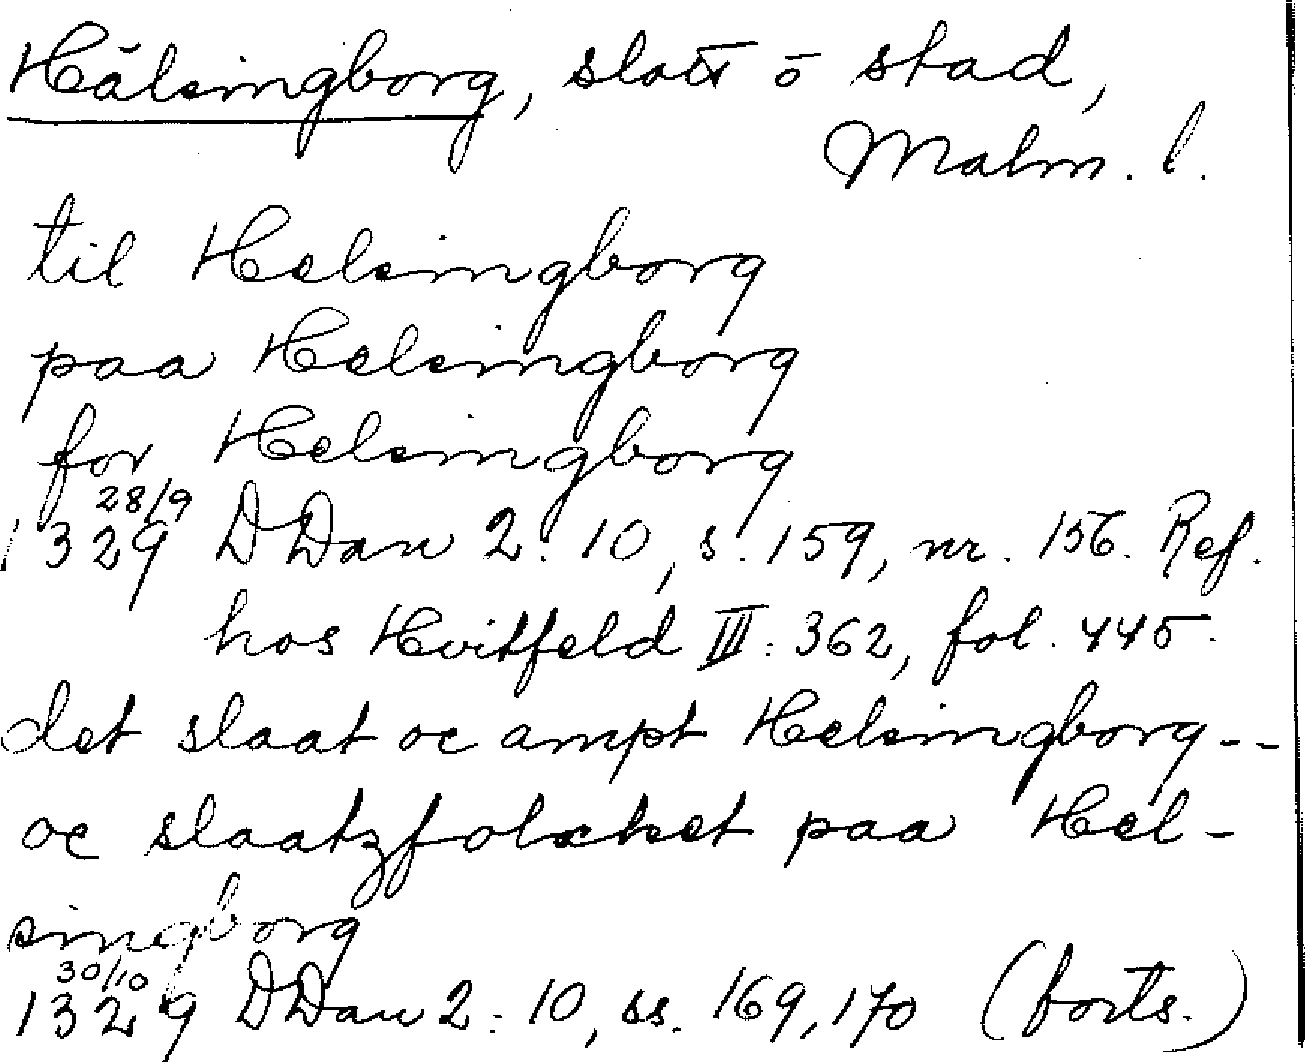 Hälsingborg, slott o stad,
Malm. l.
til Helsingborg
paa Helsingborg
for Helsingborg
28/9
1329 DDan 2:10, s. 159, nr. 156. Ref.
hos Hvitfeld III: 362, fol. 445.
det slaat oc ampt Helsingborg--
oc slaatzfolcket paa Hel-
singborg
30/10
1329 DDan 2:10, ss. 169, 170 (forts.)